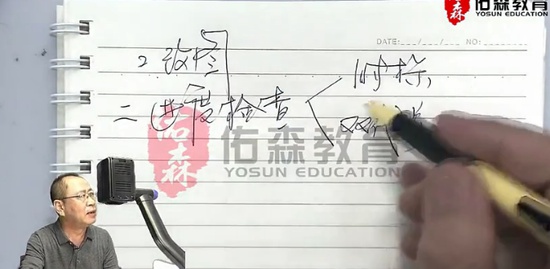 佑森教育
YOSUN EDUCATION
DATE:
NO:
2
时标
二 进度检查
佑森
佑森教育
YOSUN EDUCATION